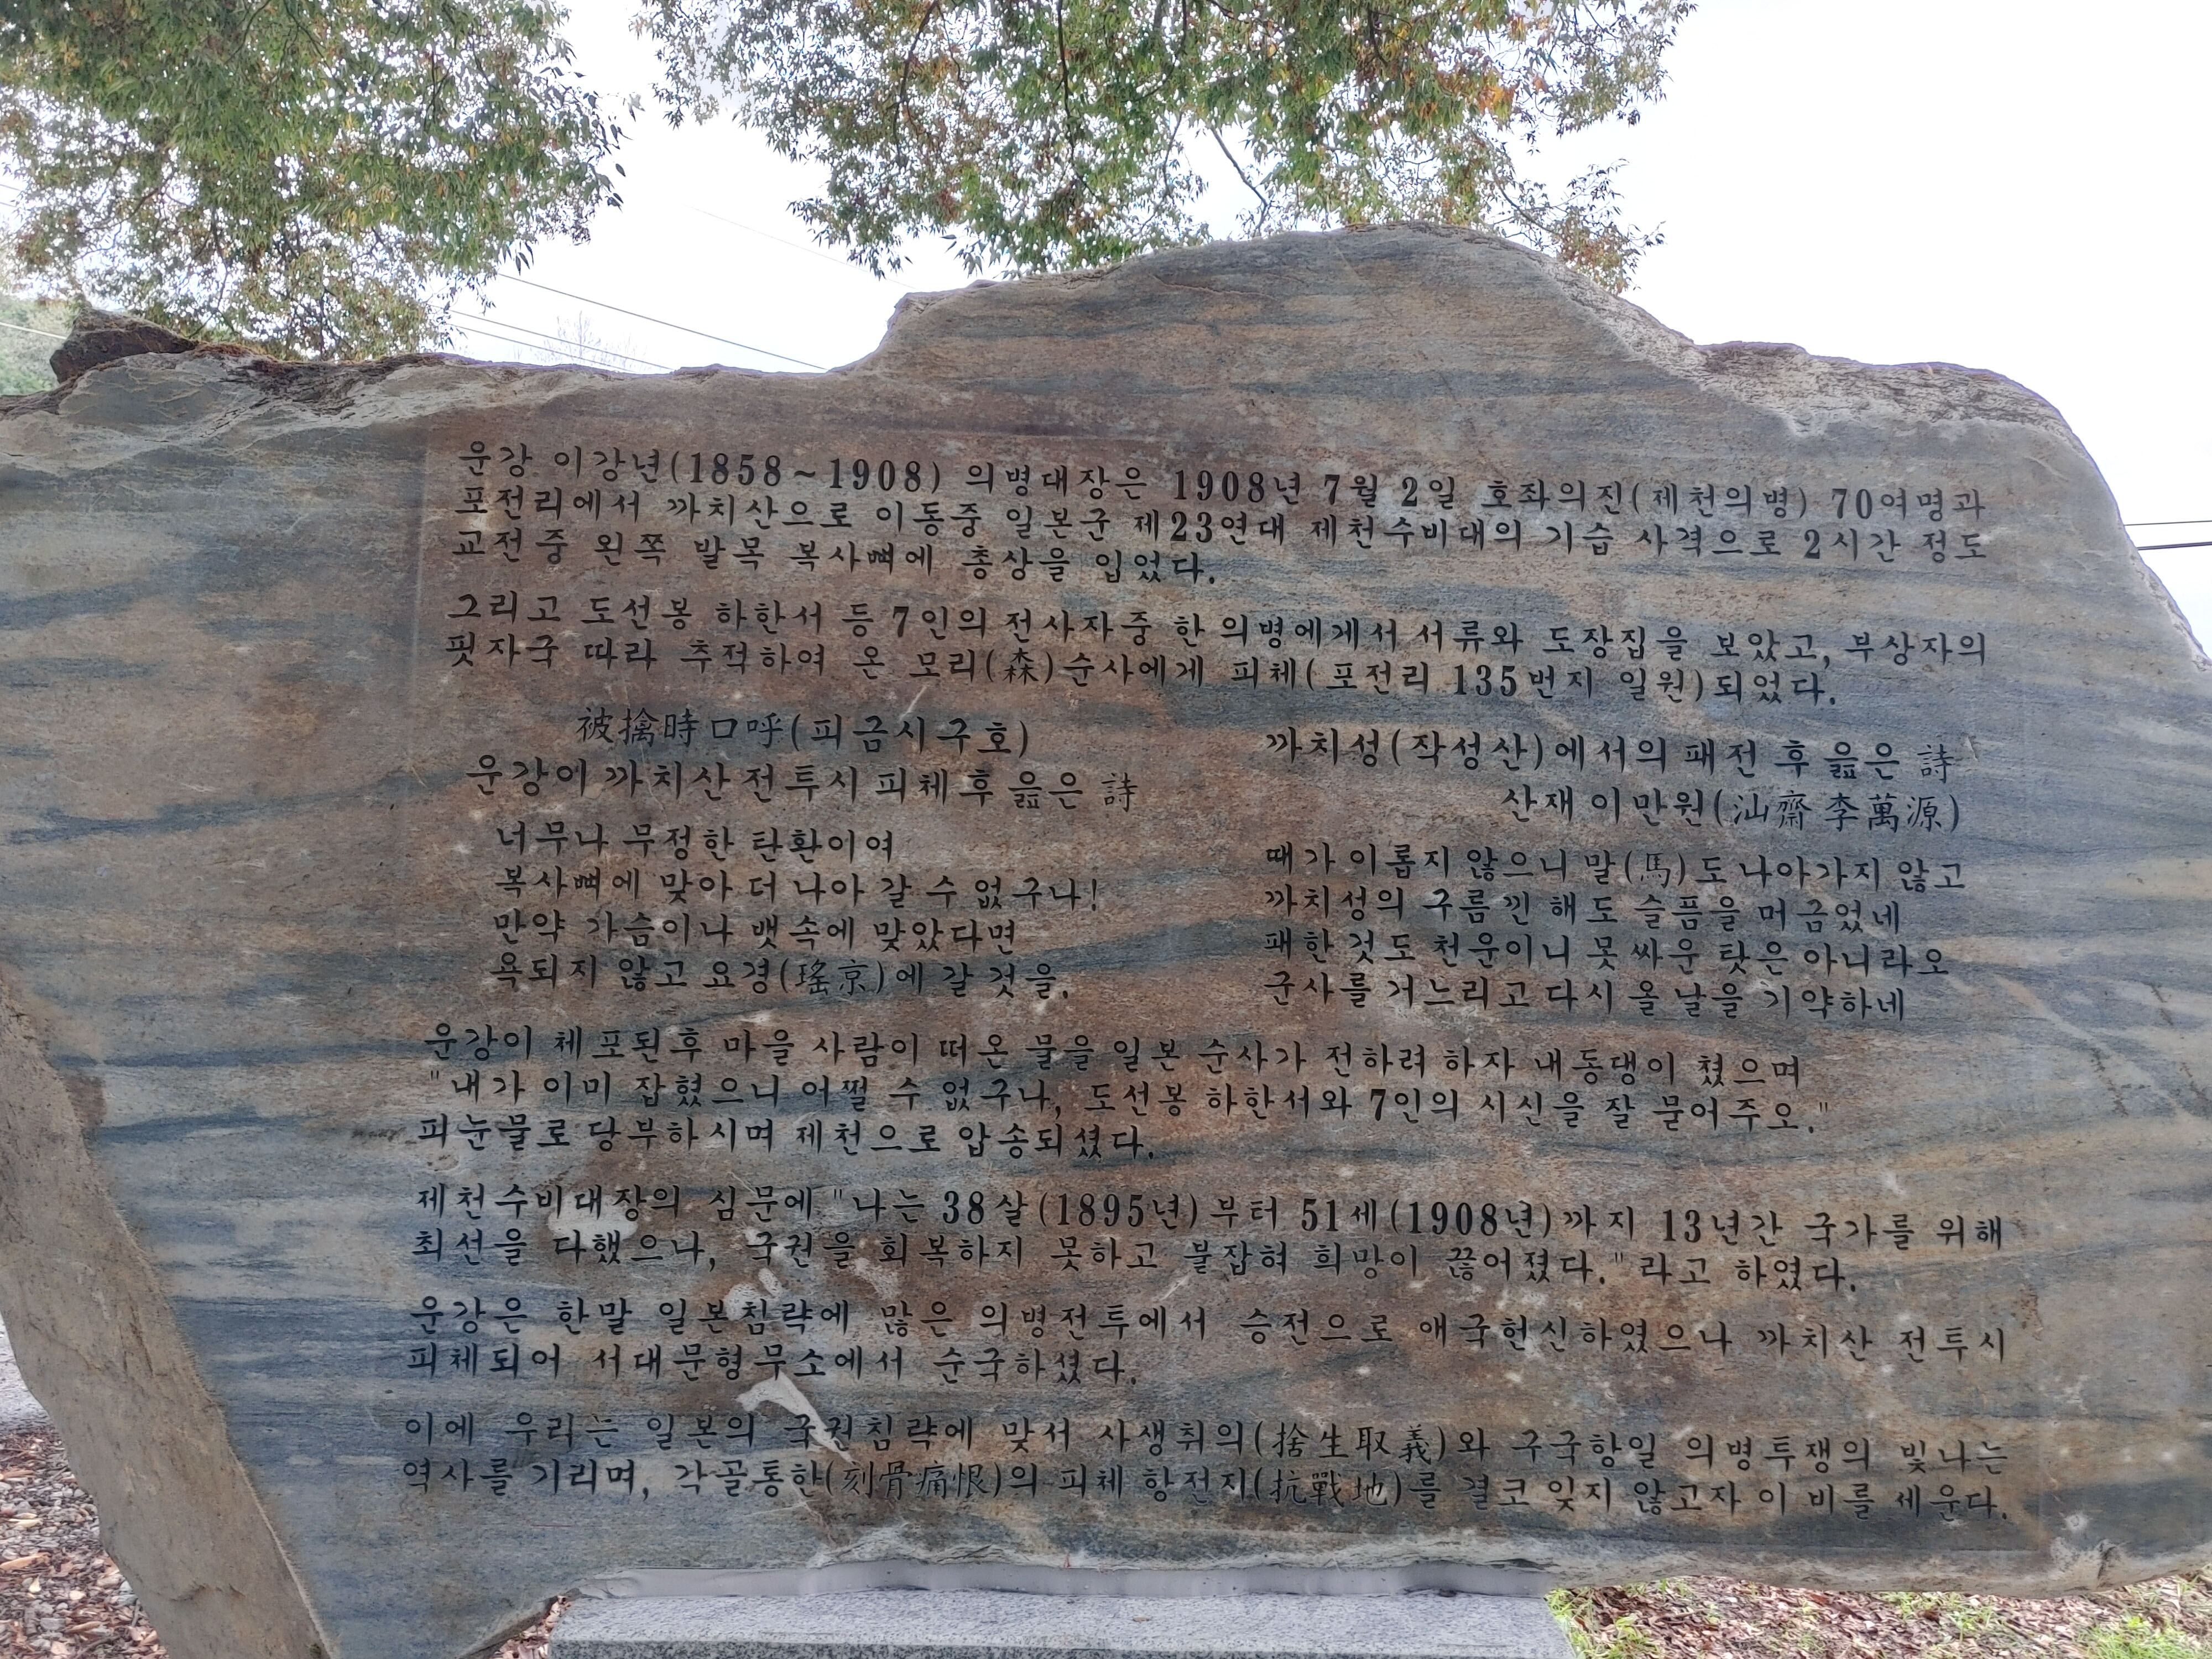 운강 이강년(1858~1908) 의병대장은 1908년 7월 2일 호좌의진(제천의병) 70여명과
포전리에서 까치산으로 이동중 일본군 제23연대 제천수비대의 기습 사격으로 2시간 정도
교전중 왼쪽 발목 복사뼈에 총상을 입었다.
그리고 도선봉 하한서 등 7인의 전사자중 한 의병에게서 서류와 도장집을 보았고, 부상자의
핏자국 따라 추적하여 온 모리(森)순사에게 피체(포전리 135번지 일원)되었다.
被擒時口呼(피금시구호)
운강이 까치산 전투시 피체후 읊은 詩
너무나 무정한 탄환이여
복사뼈에 맞아 더 나아 갈 수 없구나!
만약 가슴이나 뱃속에 맞았다면
욕되지 않고 요경(瑤京)에 갈 것을.
까치성(작성산)에서의 패전 후 읊은 詩
산재 이만원(汕齋 李萬源)
때가 이롭지 않으니 말(馬)도 나아가지 않고
까치성의 구름낀 해도 슬픔을 머금었네
패한 것도 천운이니 못 싸운 탓은 아니라오
군사를 거느리고 다시 올 날을 기약하네
운강이 체포된후 마을 사람이 떠온 물을 일본 순사가 전하려 하자 내동댕이 쳤으며
"내가 이미 잡혔으니 어쩔 수 없구나, 도선봉 하한서와 7인의 시신을 잘 묻어주오."
피눈물로 당부하시며 제천으로 압송되셨다.
제천수비대장의 심문에 "나는 38살(1895년)부터 51세(1908년)까지 13년간 국가를 위해
최선을 다했으나, 국권을 회복하지 못하고 붙잡혀 희망이 끊어졌다."라고 하였다.
운강은 한말 일본침략에 많은 의병전투에서 승전으로 애국헌신하였으나 까치산 전투시
피체되어 서대문형무소에서 순국하셨다.
이에 우리는 일본의 국권침략에 맞서 사생취의(捨生取義)와 구국항일 의병투쟁의 빛나는
역사를 기리며, 각골통한(刻骨痛恨)의 피체 항전지(抗戰地)를 결코 잊지 않고자 이 비를 세운다.